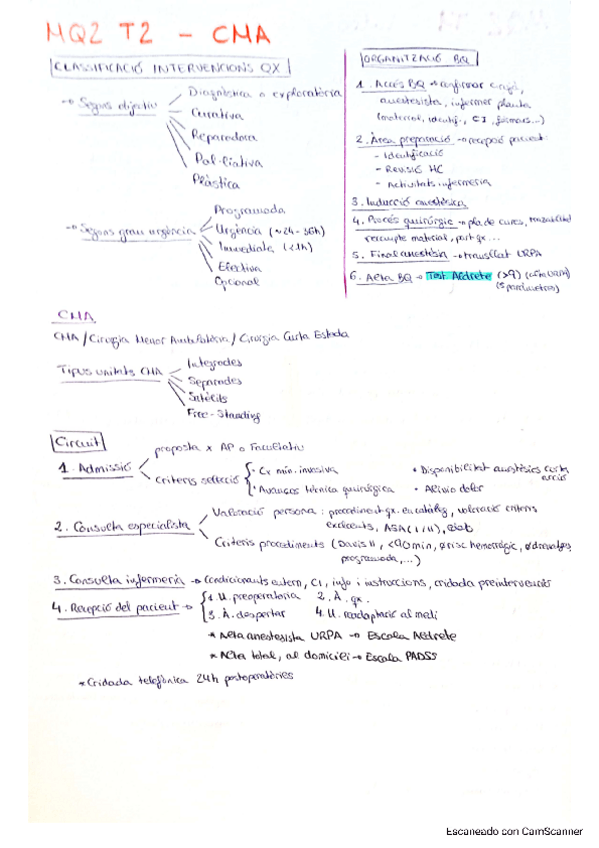 MQ2 T2 - CMA
CLASSIFICACIÓ INTERVENCIONS QX
→ Segons objectiu
Diagnòstica o exploratòria
Curativa
Reparadora
Pal·liativa
Plàstica
→ Segons grau urgència
Programada
Urgència (≈24-36h)
Immediata (<1h)
Efectiva
Opcional
ORGANITZACIÓ BQ
1. Accés BQ → confirmar cirurgià,
anestesista, informar planta
(material, identif., CI, formars...)
2. Àrea preparació → recepció pacient:
- Identificació
- Revisió HC
- Activitats infermeria
3. Inducció anestèsica
4. Procés quirúrgic → pla de cures, trazabilitat
recompte material, part qx...
5. Final anestèsia → trasllat URPA
6. Alta BQ → Test Aldrete (>9) (alta URPA)
(5 paràmetres)
CMA
CMA / Cirurgia Menor Ambulatòria / Cirurgia Curta Estada
Tipus unitats CMA
Integrades
Separades
Satèl·lits
Free-Standing
Circuit
1. Admissió
proposta x AP o Facultatiu
Criteris selecció
• Cx mín. invasiva
• Avanços tècnica quirúrgica
• Disponibilitat anestèsics curta acció
• Alivio dolor
2. Consulta especialista
Valoració persona: procediment qx. en catàleg, valoració criteris
excloents, ASA (I/II), edat
Criteris procediments (Davis II, <90min, ørisc hemorràgic, ødrenatges,
programada,...)
3. Consulta infermeria → Condicionants extern, CI, info i instruccions, cridada preintervenció
4. Recepció del pacient →
1. U. preoperatoria 2. À. qx.
3. À. despertar 4. U. readaptació al medi
* Alta anestesista URPA → Escala Aldrete
* Alta total, al domicili → Escala PADSS
*Cridada telefònica 24h postoperatòries
Escaneado con CamScanner